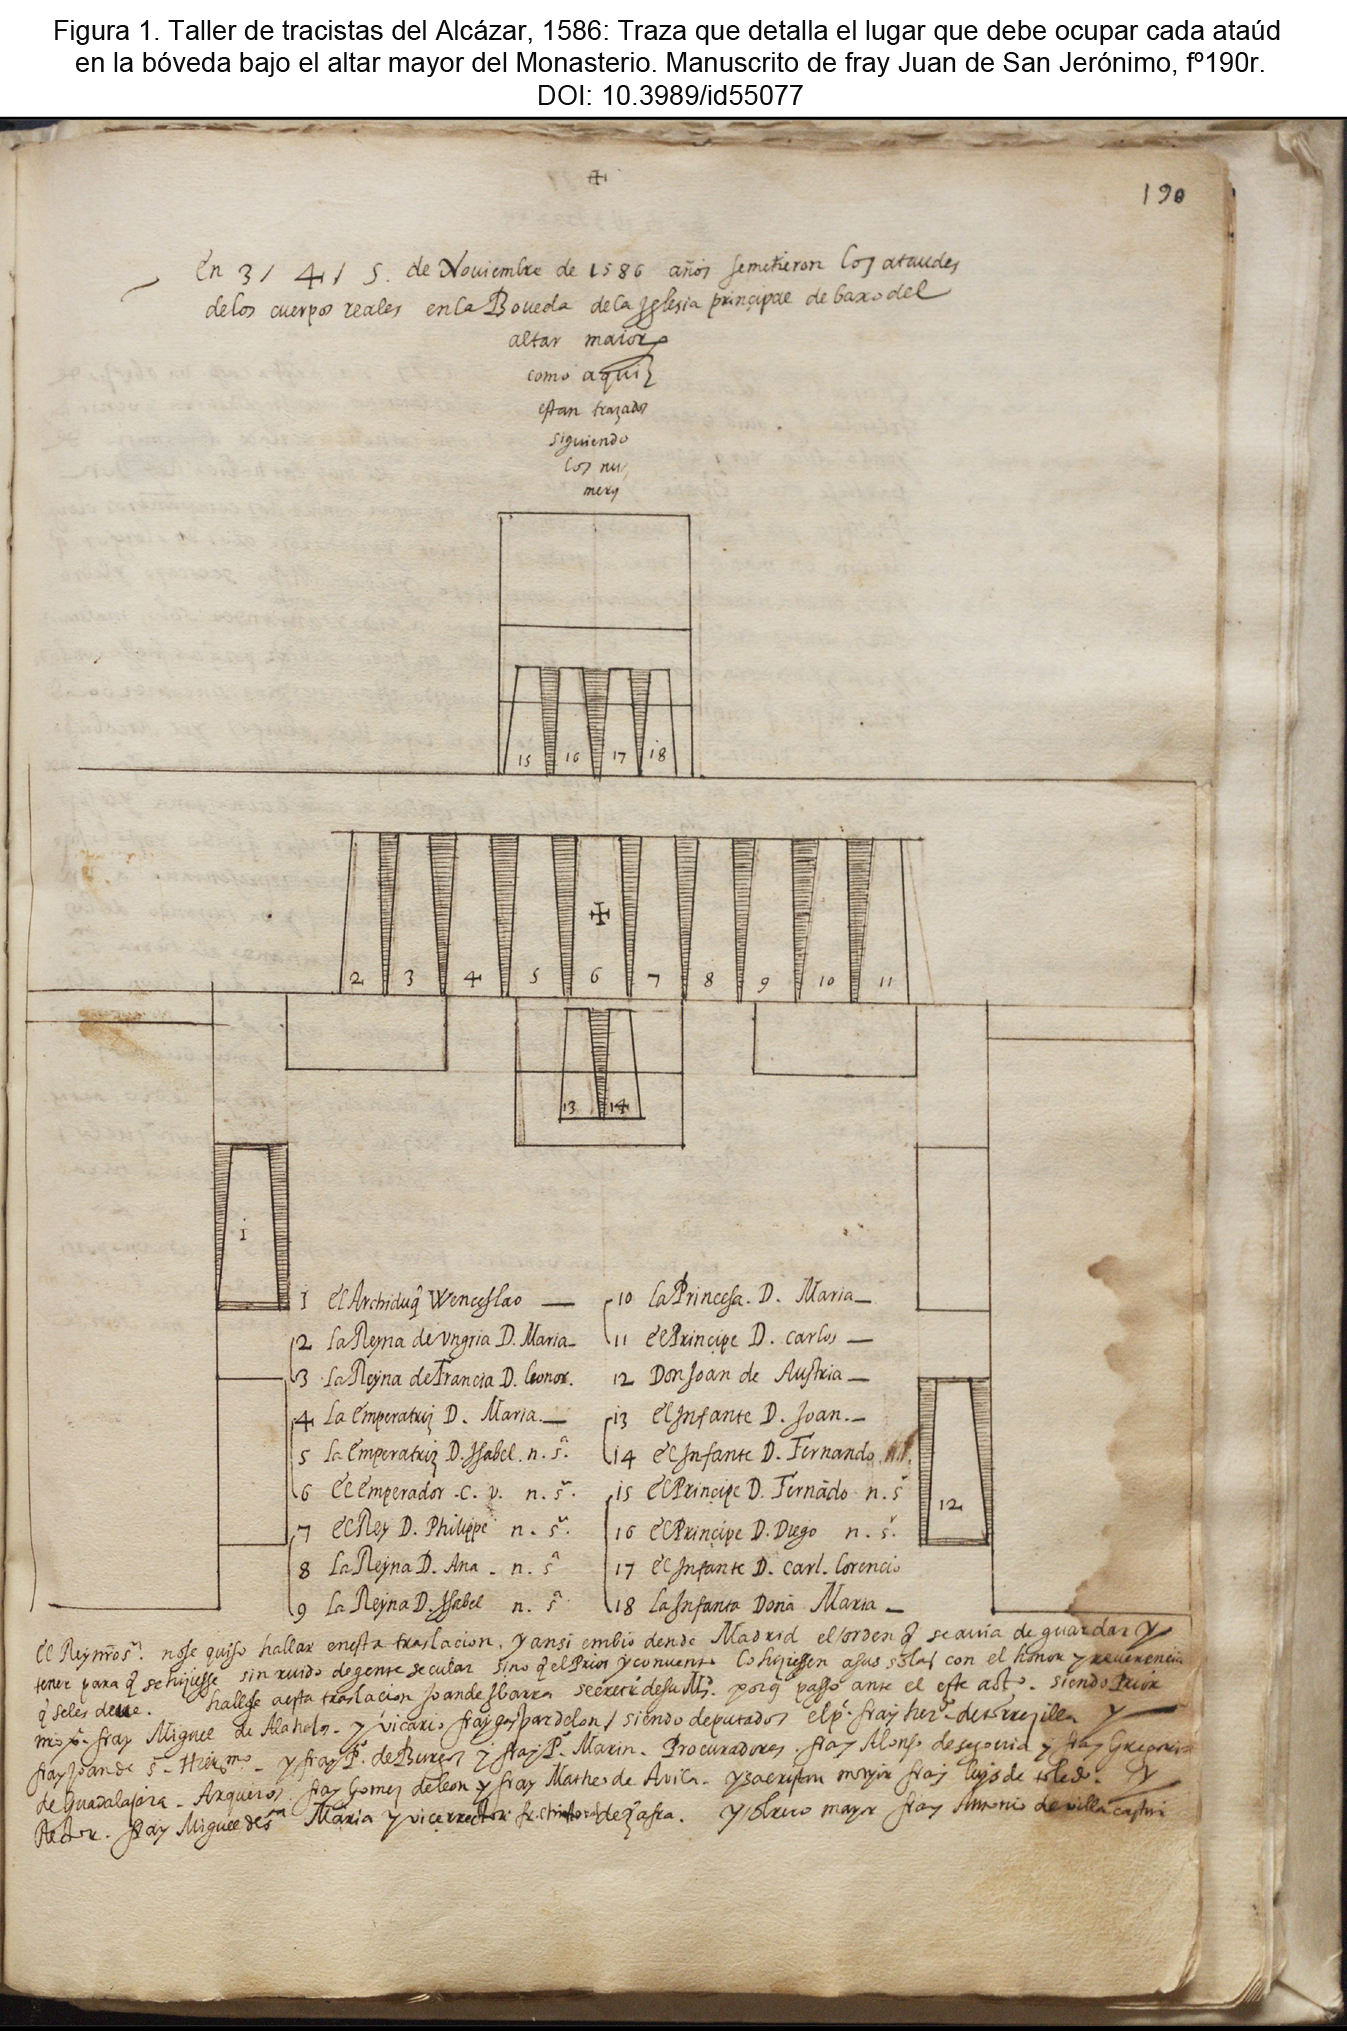 Figura 1. Taller de tracistas del Alcázar, 1586: Traza que detalla el lugar que debe ocupar cada ataúd
en la bóveda bajo el altar mayor del Monasterio. Manuscrito de fray Juan de San Jerónimo, fº190r.
DOI: 10.3989/id55077
190
En 3 / 4 / 5. de Nouiembre de 1586 años semetieron los ataudes
delos cuerpos reales enla Boueda dela Iglesia principae de baxo del
altar maior
como aqui
estan trazados
siguiendo
los nu
meros
15 16 17 18
2 3 4 5 6 7 8 9 10 11
13 14
1
12
1 el Archiduq̃ Wenceslao
2 la Reyna de Vngria D. Maria
3 la Reyna de Francia D. Leonor.
4 la Emperatriz D. Maria.
5 la Emperatriz D. Isabel. n. sª.
6 el Emperador .C. V. n. sʳ.
7 el Rey D. Philippe n. sʳ.
8 La Reyna D. Ana . n. sª
9 la Reyna D. Isabel n. sª
10 la Princesa. D. Maria
11 el Principe D. carlos
12 Don Joan de Austria
13 el Infante D. Joan.
14 el Infante D. Fernando
15 el Principe D. Fernãdo n. sʳ
16 el Principe D. Diego n. sʳ.
17 el Infante D. Carl. Lorencio
18 la Infanta Doña Maria
el Rey nr̃o sʳ. nose quiso hallar enesta traslacion, y ansi embio dende Madrid el orden q̃ se auia de guardar y
tener para q̃ se hiziesse sin ruido de gente secular sino q̃ el Prior y conuento lo hiziessen a sus solas con el honor y reuerencia
q̃ seles deue. hallose aesta traslacion Joan de Ibarra secretº de su Mᵈ. porq̃ passo ante el este acto. siendo Prior
fray Miguel de Alaholos. y vicario fray gaspar de leon / siendo deputados el p. fray de torrezilla y
fray Joan de s. Hierᵐᵒ. y fray P. de Burgos y fray P. Marin. Procuradores. fray Alonso de segouia y fray Gregorio
de Guadalajara. Arqueros. fray Gomez de leon y fray Matheo de Auila. y sacristan mayor fray de toledo. y
Rector. fray Miguel de sᵗᵃ Maria y vicerrector de çafra. y mayor fray Antonio de villacastin